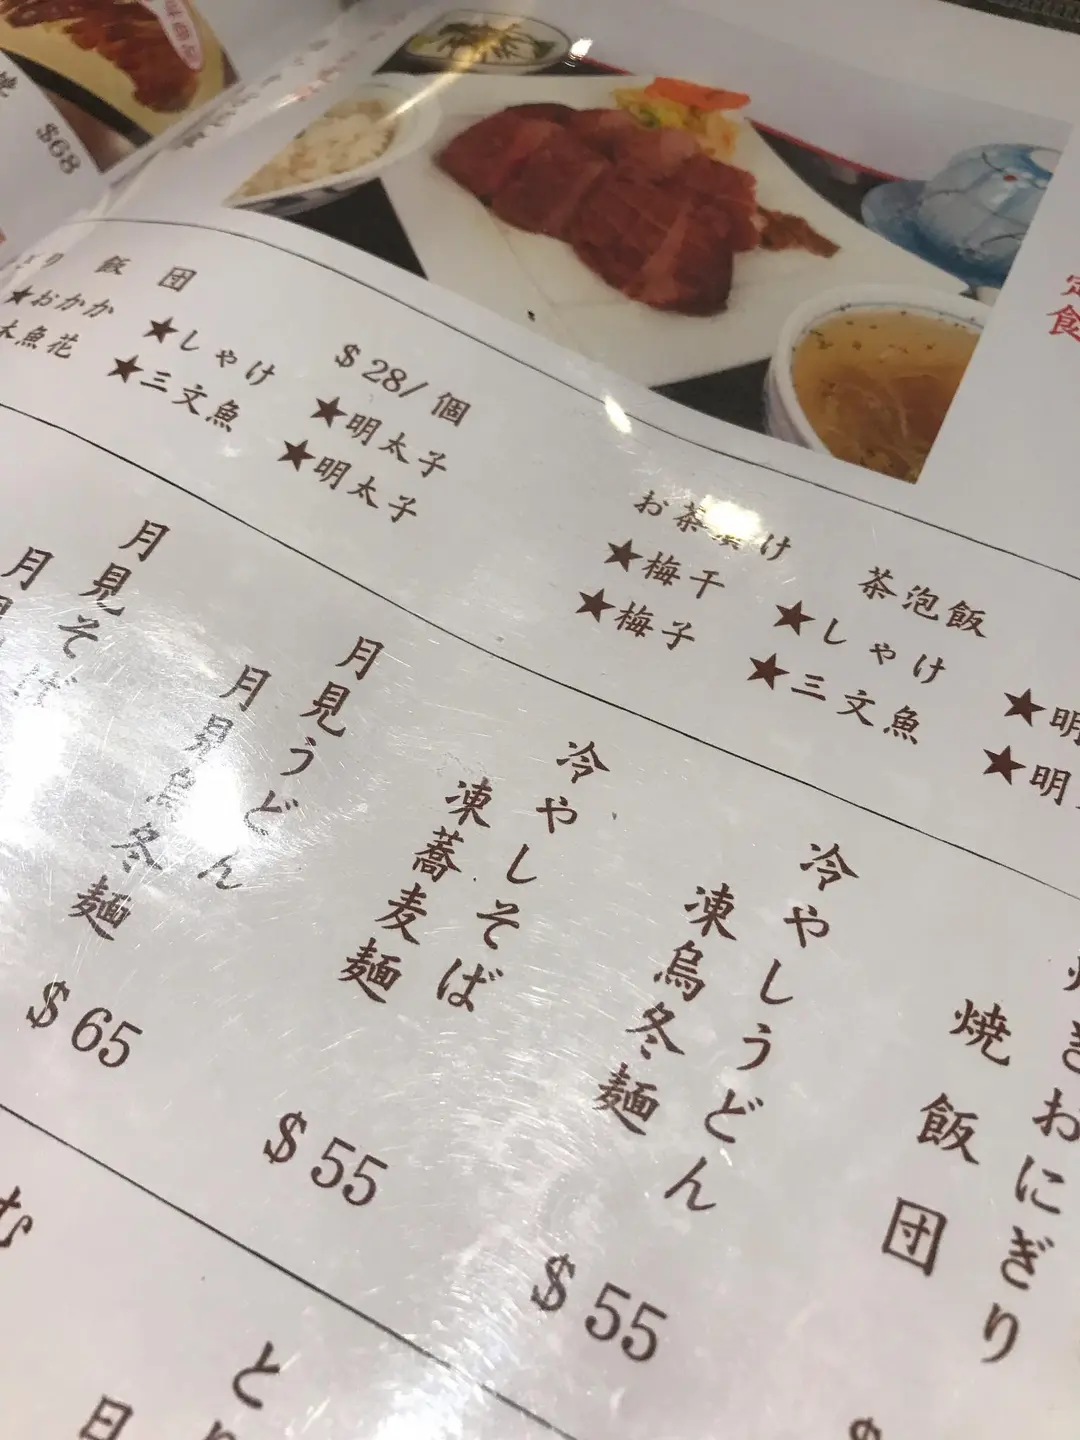 $68
飯 団
★おかか ★しゃけ ★明太子
木魚花 ★三文魚 ★明太子
$28/個
定
食
お茶漬け 茶泡飯
★梅干 ★しゃけ ★明
★梅子 ★三文魚 ★明
月見そば
月見
月見うどん
月見烏冬麵
$65
冷やしそば
凍蕎麦麵
$55
冷やしうどん
凍烏冬麵
$55
きおにぎり
焼飯団
む
と